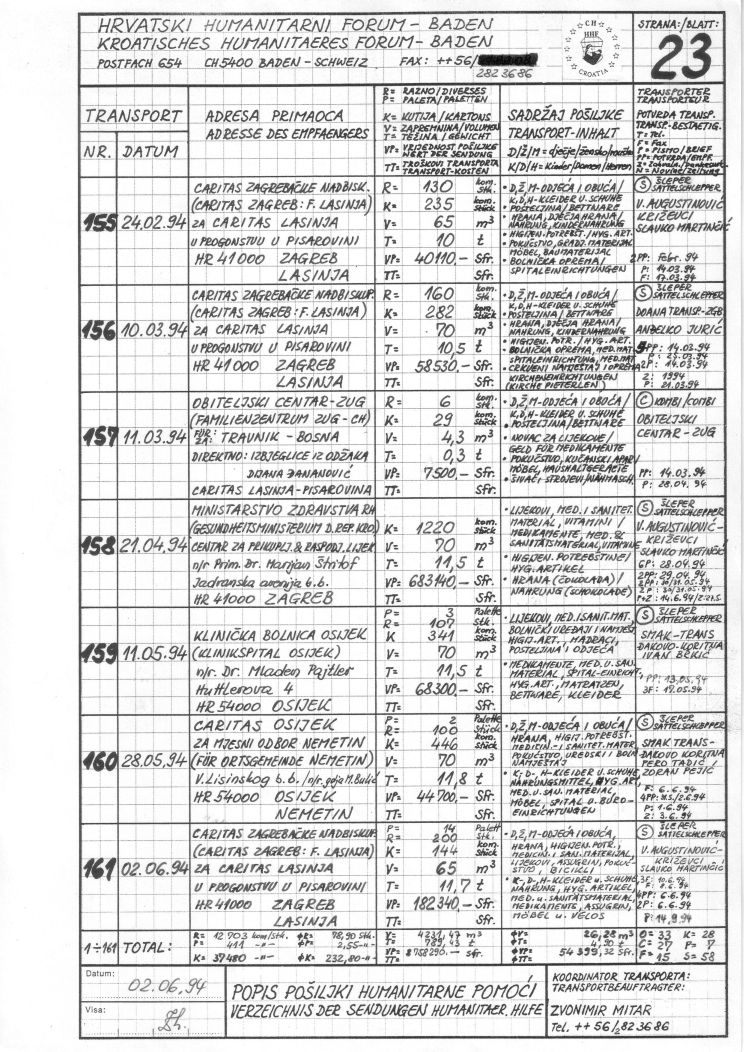 HRVATSKI HUMANITARNI FORUM - BADEN
KROATISCHES HUMANITAERES FORUM - BADEN
POSTFACH 654 CH 5400 BADEN - SCHWEIZ FAX: ++ 56/
2823686
CH
HHF
CROATIA
STRANA:/BLATT:
23
TRANSPORT
NR. DATUM
ADRESA PRIMAOCA
ADRESSE DES EMPFAENGERS
R= RAZNO/DIVERSES
P= PALETA/PALETTEN
K= KUTIJA/KARTONS
V= ZAPREMNINA/VOLUMEN
T= TEŽINA/GEWICHT
VP= VRIJEDNOST POŠILJKE
WERT DER SENDUNG
TT= TROŠKOVI TRANSPORTA
TRANSPORT-KOSTEN
SADRŽAJ POŠILJKE
TRANSPORT-INHALT
D/Ž/M= dječje/žensko/muško
K/D/H= Kinder/Damen/Herren
TRANSPORTER
TRANSPORTEUR
POTVRDA TRANSP.
TRANSP.-BESTAETIG.
T= Tel.
F= Fax
P= PISMO/BRIEF
PP= POTVRDA/EMPF.
N= Novine/Zeitung
155 24.02.94
CARITAS ZAGREBAČKE NADBISK.
(CARITAS ZAGREB: F. LASINJA)
ZA CARITAS LASINJA
U PROGONSTVU U PISAROVINI
HR 41000 ZAGREB
LASINJA
R= 130 kom. Stk.
K= 235 kom. Stück
V= 65 m³
T= 10 t
VP= 40110,- Sfr.
TT= Sfr.
• D,Ž,M-ODJEĆA I OBUĆA/
K,D,H-KLEIDER U. SCHUHE
• POSTELJINA/BETTWARE
• HRANA, DJEČJA HRANA/
NAHRUNG, KINDERNAHRUNG
• HIGIJEN. POTREBŠT./HYG. ART.
• POKUĆSTVO, GRADJ. MATERIJAL
MÖBEL, BAUMATERIJAL
• BOLNIČKA OPREMA/
SPITALEINRICHTUNGEN
S ŠLEPER
SATTELSCHLEPPER
V. AUGUSTINOVIĆ
KRIŽEVCI
SLAVKO MARTINČIĆ
2PP: Febr. 94
P: 14.03.94
F: 17.03.94
156 10.03.94
CARITAS ZAGREBAČKE NADBISKUP.
(CARITAS ZAGREB: F. LASINJA)
ZA CARITAS LASINJA
U PROGONSTVU U PISAROVINI
HR 41000 ZAGREB
LASINJA
R= 160 kom. Stk.
K= 282 kom. Stück
V= 70 m³
T= 10,5 t
VP= 58530,- Sfr.
TT= Sfr.
• D,Ž,M-ODJEĆA I OBUĆA/
K,D,H-KLEIDER U. SCHUHE
• POSTELJINA/BETTWARE
• HRANA, DJEČJA HRANA/
NAHRUNG, KINDERNAHRUNG
• HIGIJEN. POTR./HYG. ART.
• BOLNIČKA OPREMA, MED. MAT.
SPITALEINRICHTUNG, MED. MAT
• CRKVENI NAMJEŠTAJ I OPREMA
KIRCHENEINRICHTUNGEN
(KIRCHE PIETERLEN)
S ŠLEPER
SATTELSCHLEPPER
DOANA TRANSP-ZGB
ANĐELKO JURIĆ
5PP: 14.03.94
P: 25.03.94
2P: 14.03.94
Z: 1994
P: 21.03.94
157 11.03.94
OBITELJSKI CENTAR-ZUG
(FAMILIENZENTRUM ZUG-CH)
FÜR: ZA: TRAVNIK - BOSNA
DIREKTNO: IZBJEGLICE IZ ODŽAKA
DIJANA ĐANANOVIĆ
CARITAS LASINJA-PISAROVINA
R= 6 kom. Stk.
K= 29 kom. Stück
V= 4,3 m³
T= 0,3 t
VP= 7500,- Sfr.
TT= Sfr.
• D,Ž,M-ODJEĆA I OBUĆA/
K,D,H-KLEIDER U. SCHUHE
• POSTELJINA/BETTWARE
• NOVAC ZA LIJEKOVE/
GELD FÜR MEDIKAMENTE
• POKUĆSTVO, KUĆANSKI APAR/
MÖBEL, HAUSHALTGERAETE
• ŠIVAĆI STROJEVI/NÄHMASCH.
C KOMBI/COMBI
OBITELJSKI
CENTAR-ZUG
PP: 14.03.94
P: 28.04.94
158 21.04.94
MINISTARSTVO ZDRAVSTVA RH
(GESUNDHEITSMINISTERIUM D. REP. KRO.)
CENTAR ZA PRIKUPLJ. & RASPODJ. LIJEK.
n/r Prim. Dr. Marijan Štrlof
Jadranska avenija b.b.
HR 41000 ZAGREB
K= 1220 kom. Stück
V= 70 m³
T= 11,5 t
VP= 683140,- Sfr.
TT= Sfr.
• LIJEKOVI, MED. I SANITET.
MATERIJAL, VITAMINI/
MEDIKAMENTE, MED. &
SANITÄTSMATERIAL, VITAMINE
• HIGIJEN. POTREBŠTINE/
HYG. ARTIKEL
• HRANA (ČOKOLADA)/
NAHRUNG (SCHOKOLADE)
S ŠLEPER
SATTELSCHLEPPER
V. AUGUSTINOVIĆ-
KRIŽEVCI
SLAVKO MARTINČIĆ
6P: 28.04.94
2PP: 29.04.94
2PP: 30/31.05.94
2P: 30/31.05.94
159 11.05.94
KLINIČKA BOLNICA OSIJEK
(KLINIKSPITAL OSIJEK)
n/r. Dr. Mladen Pajtler
Huttlerova 4
HR 54000 OSIJEK
P= 3 Palette
R= 107 Stk.
K 341 kom. Stück
V= 70 m³
T= 11,5 t
VP= 68300,- Sfr.
TT= Sfr.
• LIJEKOVI, MED. I SANIT. MAT.
BOLNIČKI UREĐAJI I NAMJEŠT.
HIGIJ. ART., MADRACI,
POSTELJINA I ODJEĆA
• MEDIKAMENTE, MED. U. SAN.
MATERIAL, SPITAL-EINRICHT,
HYG. ART., MATRATZEN,
BETTWARE, KLEIDER
S ŠLEPER
SATTELSCHLEPPER
SMAK-TRANS
ĐAKOVO-KORITNA
IVAN BRKIĆ
PP: 13.05.94
3F: 19.05.94
160 28.05.94
CARITAS OSIJEK
ZA MJESNI ODBOR NEMETIN
(FÜR ORTSGEMEINDE NEMETIN)
V. Lisinskog b.b. / n/r. gdja M. Bulić
HR 54000 OSIJEK
NEMETIN
P= 2 Palette
R= 100 Stück
K= 446 kom. Stück
V= 70 m³
T= 11,8 t
VP= 44700,- Sfr.
TT= Sfr.
• D,Ž,M-ODJEĆA I OBUĆA/
HRANA, HIGIJ. POTREBŠT.
MEDICIN.- I SANITET. MATER.
POKUĆSTVO UREDSKI I BOLN
NAMJEŠTAJ
• K,- D,- H-KLEIDER U. SCHUHE,
NAHRUNGSMITTEL, HYG. ART.
MED. U. SAN. MATERIAL,
MÖBEL, SPITAL U. BÜRO-
EINRICHTUNGEN
S ŠLEPER
SATTELSCHLEPPER
SMAK TRANS-
ĐAKOVO KORITNA
PERO TADIĆ/
ZORAN PEJIĆ
F: 6.6.94
4PP: 31.5./2.6.94
P: 1.6.94
Z: 3.6.94
161 02.06.94
CARITAS ZAGREBAČKE NADBISKUP.
(CARITAS ZAGREB: F. LASINJA)
ZA CARITAS LASINJA
U PROGONSTVU U PISAROVINI
HR 41000 ZAGREB
LASINJA
P= 14 Palett
R= 200 Stk.
K= 144 kom. Stück
V= 65 m³
T= 11,7 t
VP= 182340,- Sfr.
TT= Sfr.
• D,Ž,M-ODJEĆA I OBUĆA,
HRANA, HIGIJEN. POTR.,
MEDICIN. I SAN. MATERIJAL,
LIJEKOVI, ASSUGRIN, POKUĆ-
STVO, BICIKLI
• K-, D-, H-KLEIDER U. SCHUHE,
NAHRUNG, HYG. ARTIKEL,
MED. U. SANITÄTSMATERIAL,
MEDIKAMENTE, ASSUGRIN,
MÖBEL U. VELOS
S ŠLEPER
SATTELSCHLEPPER
V. AUGUSTINOVIĆ-
KRIŽEVCI
SLAVKO MARTINČIĆ
3F: 10.6.94
4PP: 6.6.94
2P: 6.6.94
P: 14.9.94
1÷161 TOTAL:
R= 12 903 kom/stk. ØR= 78,90 Stk.
P= 411 -"- ØP= 2,55 -"-
K= 37480 -"- ØK= 232,80 -"-
V= 4231,47 m³ ØV= 26,28 m³
T= 789,43 t ØT= 4,90 t
VP= 8758290.- Sfr. ØVP= 54 399,32 Sfr.
TT= ØTT=
O= 33 K= 28
C= 27 P= 7
F= 15 S= 58
Datum:
02.06.94
Visa:
POPIS POŠILJKI HUMANITARNE POMOĆI
VERZEICHNIS DER SENDUNGEN HUMANITAER. HILFE
KOORDINATOR TRANSPORTA:
TRANSPORTBEAUFTRAGTER:
ZVONIMIR MITAR
Tel. ++ 56/2823686